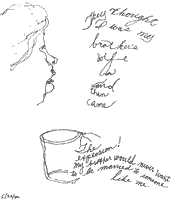 thought
I was my
brother's
wife
than
came
The
expression!
my brother would never want
to be married to someone
like me.